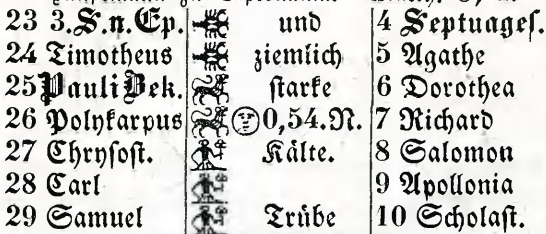 23 3. S. n. Ep. und 4 Septuages.
24 Timotheus ziemlich 5 Agathe
25 Pauli Bek. starke 6 Dorothea
26 Polykarpus 0,54. N. 7 Richard
27 Chrysost. Kälte. 8 Salomon
28 Carl 9 Apollonia
29 Samuel Trübe 10 Scholast.